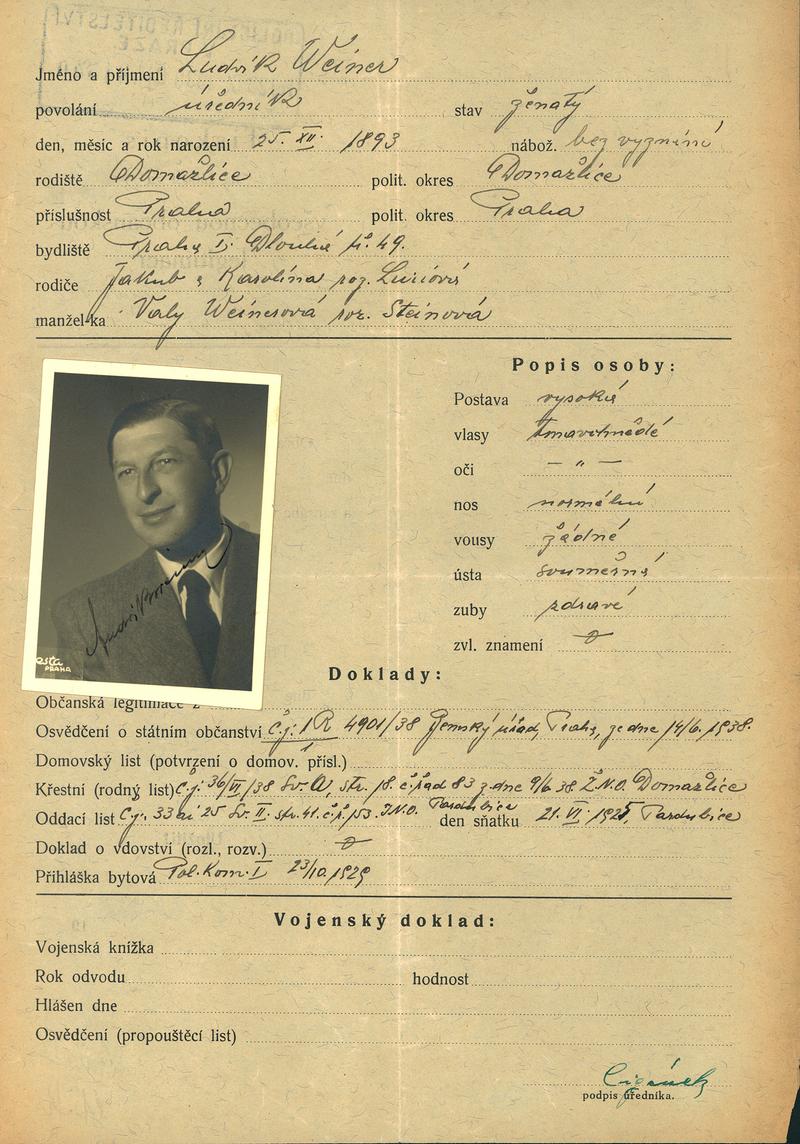 Jméno a příjmení Ludvík Weiner
povolání úředník stav ženatý
den, měsíc a rok narození 25. XII. 1893 nábož. bez vyznání
rodiště Domažlice polit. okres Domažlice
příslušnost Praha polit. okres Praha
bydliště Praha I. Dlouhá tř. 49.
rodiče Jakub a Karolína roz.
manžel-ka Valy Weinerová roz. Steinová
Popis osoby:
Postava vysoká
vlasy tmavohnědé
oči — " —
nos normální
vousy žádné
ústa souměrná
zuby zdravé
zvl. znamení
PRAHA
Doklady:
Občanská legitimace
Osvědčení o státním občanství č.j. 1R 4901/38 Zemský úřad, Praha, ze dne 14/6. 1938.
Domovský list (potvrzení o domov. přísl.)
Křestní (rodný list) č.j. 36/VI/38 Sv. A, str. 18. č. řad 83 z dne 9/6 38 Ž.N.O. Domažlice
Oddací list č.j. 33 ai 25 Sv. II. str. 41. č.ř. 153. I.N.O. Pardubice den sňatku 21. VI. 1925, Pardubice
Doklad o vdovství (rozl., rozv.)
Přihláška bytová Pol. Kom. I 23/10. 1929
Vojenský doklad:
Vojenská knížka
Rok odvodu hodnost
Hlášen dne
Osvědčení (propouštěcí list)
podpis úředníka.